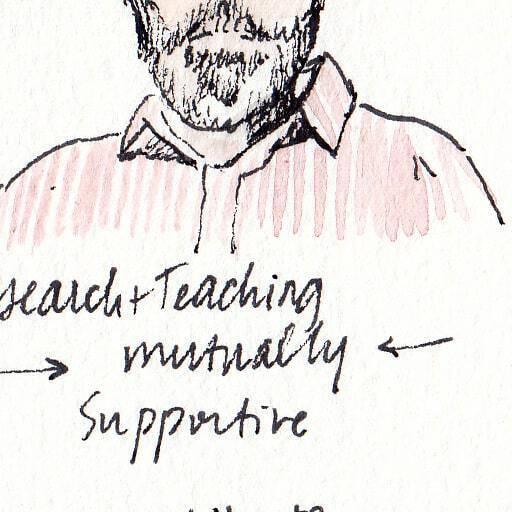 search + Teaching
→ mutually ←
Supportive